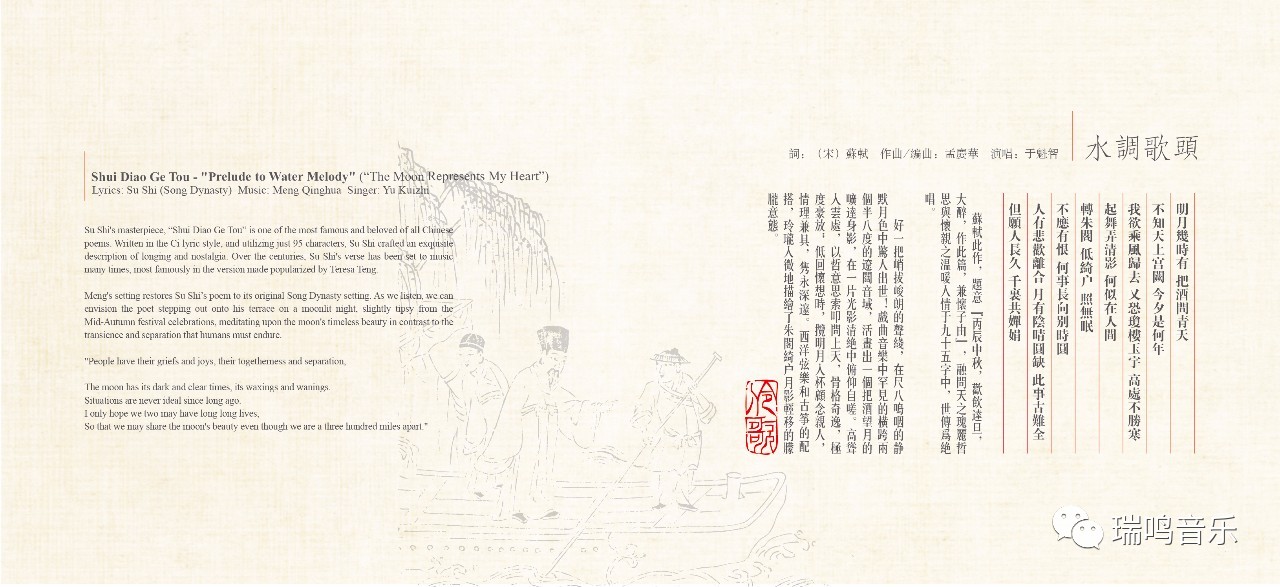 Shui Diao Ge Tou - "Prelude to Water Melody" (“The Moon Represents My Heart”)
Lyrics: Su Shi (Song Dynasty) Music: Meng Qinghua Singer: Yu Kuizhi
Su Shi's masterpiece, “Shui Diao Ge Tou” is one of the most famous and beloved of all Chinese
poems. Written in the Ci lyric style, and utilizing just 95 characters, Su Shi crafted an exquisite
description of longing and nostalgia. Over the centuries, Su Shi's verse has been set to music
many times, most famously in the version made popularized by Teresa Teng.
Meng's setting restores Su Shi’s poem to its original Song Dynasty setting. As we listen, we can
envision the poet stepping out onto his terrace on a moonlit night, slightly tipsy from the
Mid-Autumn festival celebrations, meditating upon the moon's timeless beauty in contrast to the
transience and separation that humans must endure.
"People have their griefs and joys, their togetherness and separation,
The moon has its dark and clear times, its waxings and wanings.
Situations are never ideal since long ago,
I only hope we two may have long long lives,
So that we may share the moon's beauty even though we are a three hundred miles apart."
水調歌頭
詞：（宋）蘇軾 作曲/編曲：孟慶華 演唱：于魁智
明月幾時有 把酒問青天
不知天上宮闕 今夕是何年
我欲乘風歸去 又恐瓊樓玉宇 高處不勝寒
起舞弄清影 何似在人間
轉朱閣 低綺户 照無眠
不應有恨 何事長向別時圓
人有悲歡離合 月有陰晴圓缺 此事古難全
但願人長久 千裏共嬋娟
蘇軾此作，題意『丙辰中秋，歡飲達旦，
大醉，作此篇，兼懷子由』，融問天之瑰麗哲
思與懷親之温暖人情于九十五字中，世傳爲絶
唱。
好一把峭拔峻朗的聲綫，在尺八嗚咽的静
默月色中驚人出世！戲曲音樂中罕見的横跨兩
個半八度的遼闊音域，活畫出一個把酒望月的
曠達身影，在一片光影清絶中俯仰自嗟。高聳
入雲處，以哲意思索叩問上天、骨格奇逸，極
度豪放，低回懷想時，攬明月入杯顧念親人，
情理兼具，雋永深邃。西洋弦樂和古箏的配
搭，玲瓏入微地描繪了朱閣綺户月影輕移的朦
朧意態。
冷歌
瑞鸣音乐